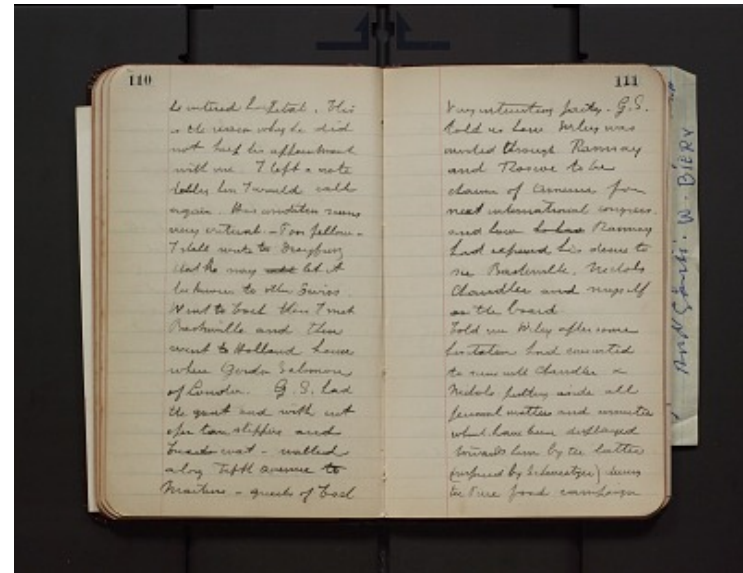 110
he entered hospital. This
is the reason why he did
not keep his appointment
with me. I left a note
telling him I would call
again. His condition seems
very critical - Poor fellow -
I shall write to
that he may let it
be known to other Swiss.
Went to Coal then I met
Baskerville and then
went to Holland house
where Gordon Salomon
of London. G. S. had
the gout and with cut
open tan slippers and
coat - walked
along Fifth avenue to
Martins - guests of
111
Very interesting party. G.S.
told us how Wiley was
through Ramsay
and Roscoe to be
of America for
next international congress.
and how Ramsay
had expressed his desire to
see Baskerville, Nichols
Chandler and myself
on the board
Told me Wiley after some
hesitation had consented
to Chandler &
Nichols putting aside all
personal matters and
what have been displayed
towards him by the latter
(inspired by Schweitzer) during
the Pure food campaign
W. BIERY